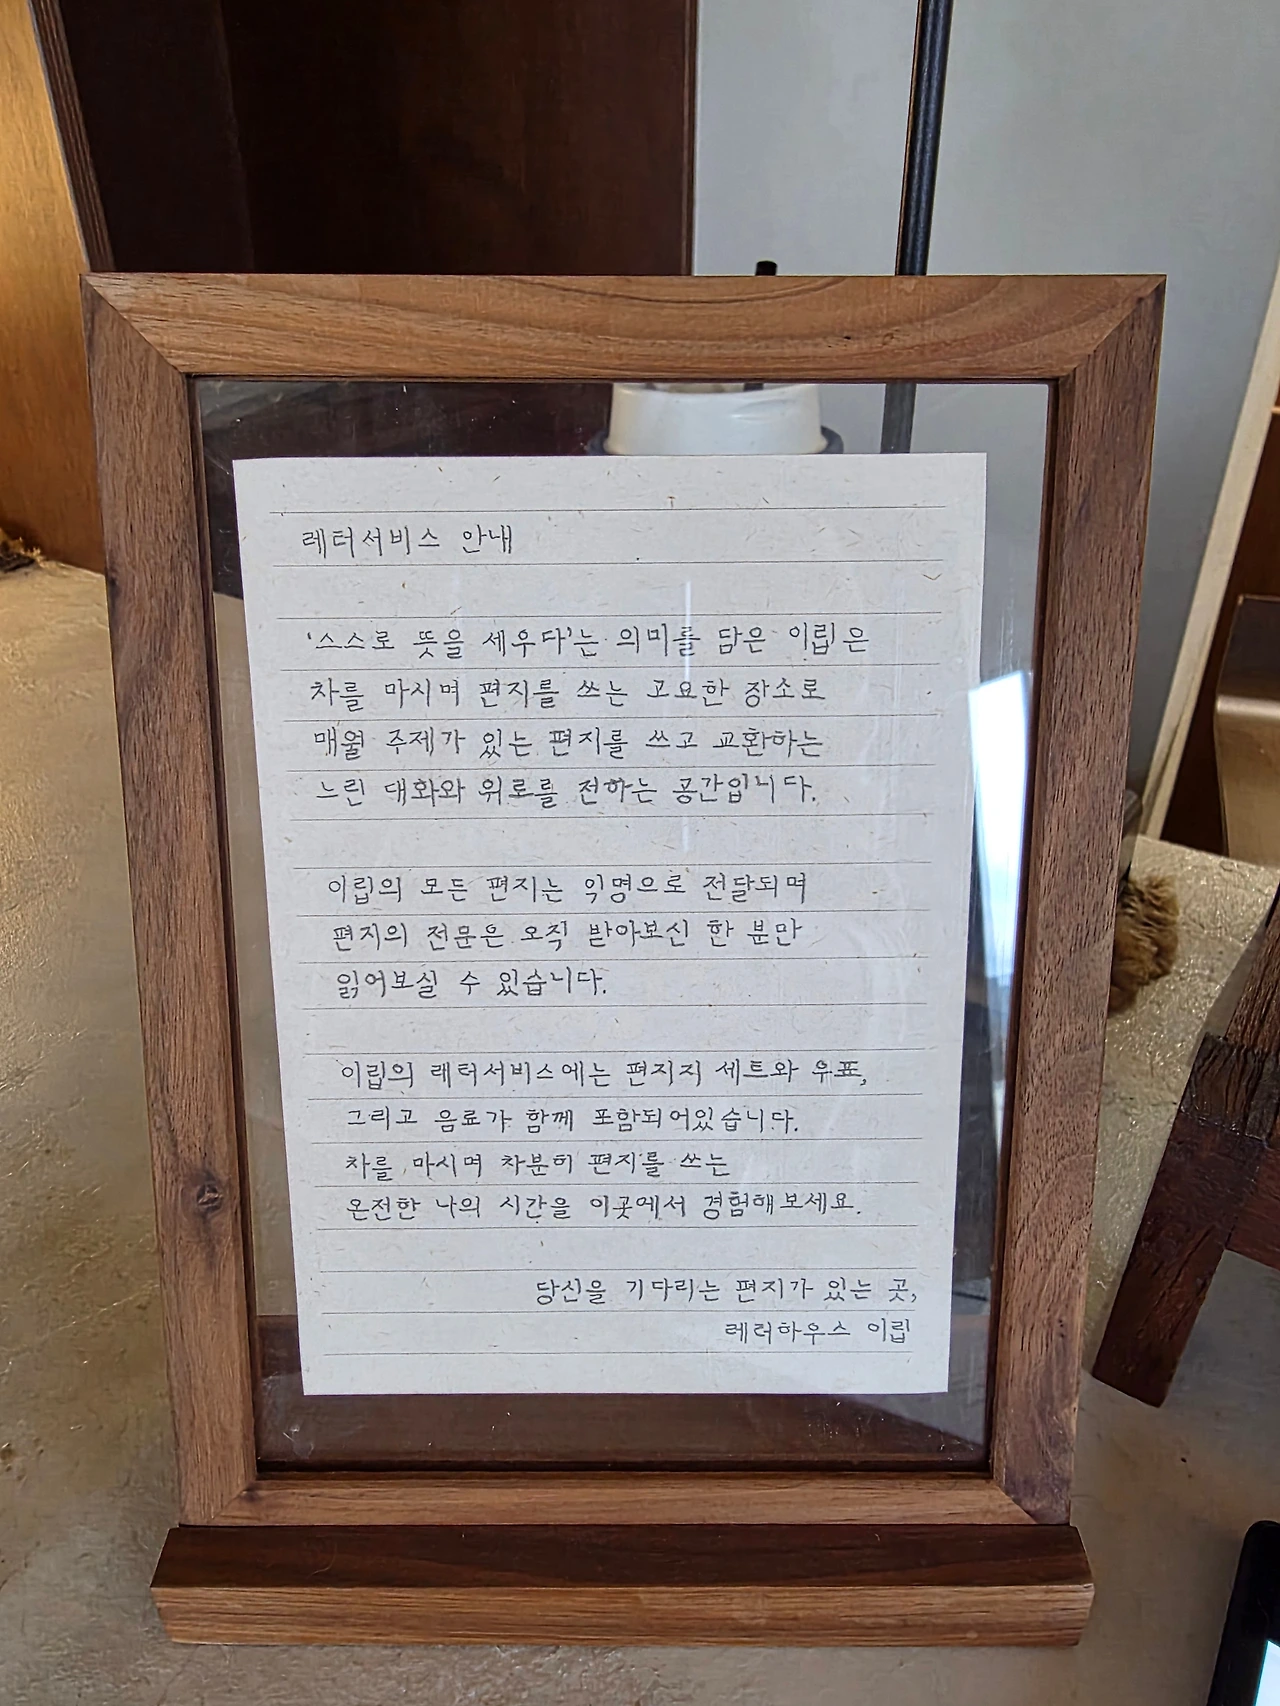 레터서비스 안내
'스스로 뜻을 세우다'는 의미를 담은 이립은
차를 마시며 편지를 쓰는 고요한 장소로
매월 주제가 있는 편지를 쓰고 교환하는
느린 대화와 위로를 전하는 공간입니다.
이립의 모든 편지는 익명으로 전달되며
편지의 전문은 오직 받아보신 한 분만
읽어보실 수 있습니다.
이립의 레터서비스에는 편지지 세트와 우표,
그리고 음료가 함께 포함되어있습니다.
차를 마시며 차분히 편지를 쓰는
온전한 나의 시간을 이곳에서 경험해보세요.
당신을 기다리는 편지가 있는 곳,
레터하우스 이립